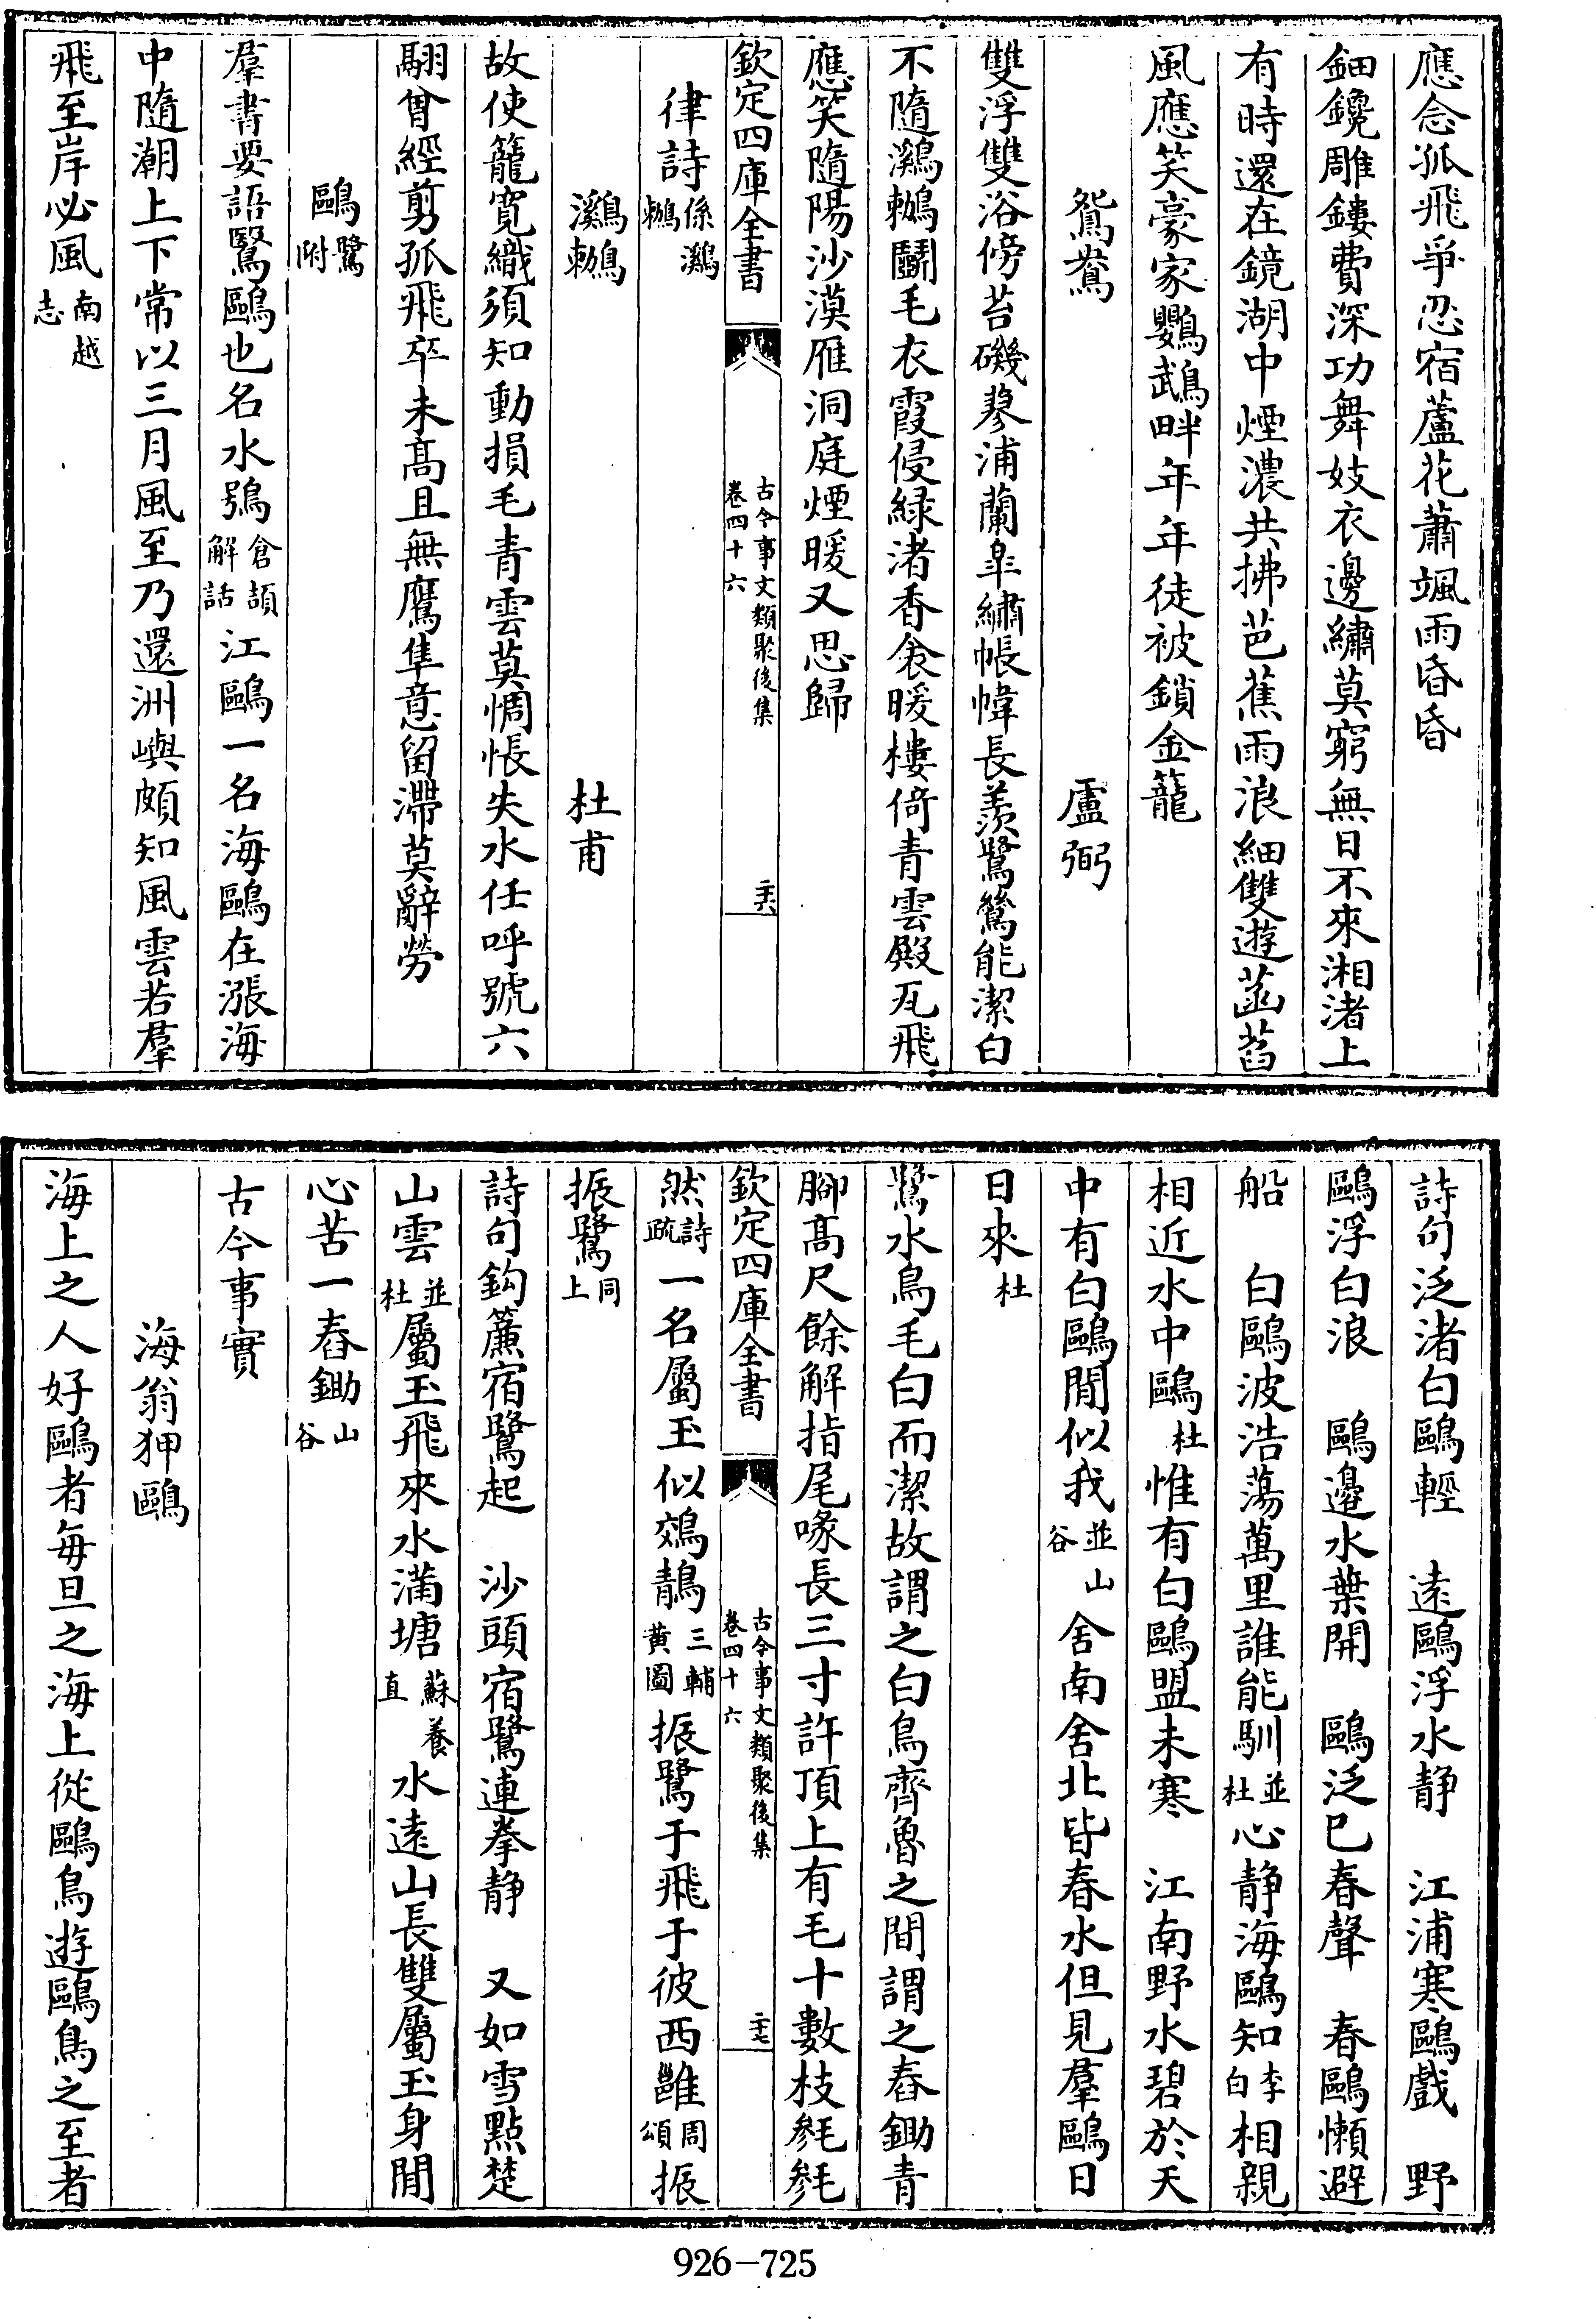 應念孤飛爭忍宿蘆花蕭颯雨昏昏
鈿鑱雕鏤費深功舞妓衣邊繡莫窮無日不來湘渚上
有時還在鏡湖中煙濃共拂芭蕉雨浪細雙遊菡萏
風應笑豪家鸚鵡畔年年徒被鎖金籠
鴛鴦 盧弼
雙浮雙浴傍苔磯蓼浦蘭皐繡帳幃長羡鷺鶿能潔白
不隨鸂鶒鬬毛衣霞侵緑渚香衾暖樓倚青雲殿瓦飛
應笑隨陽沙漠雁洞庭煙暖又思歸
欽定四庫全書 古今事文類聚後集 卷四十六 二十六
律詩 係鸂鶒
鸂鶒 杜甫
故使籠寛織須知動損毛青雲莫惆悵失水任呼號六
翮曾經剪孤飛卒未髙且無鷹隼意留滯莫辭勞
鷗 鷺附
羣書要語鷖鷗也名水鴞 倉頡解詁 江鷗一名海鷗在漲海
中隨潮上下常以三月風至乃還洲嶼頗知風雲若羣
飛至岸必風 南越志
詩句泛渚白鷗輕 遠鷗浮水静 江浦寒鷗戲 野
鷗浮白浪 鷗邉水葉開 鷗泛已春聲 春鷗懶避
船 白鷗波浩蕩萬里誰能馴 並杜 心静海鷗知 李白 相親
相近水中鷗 杜 惟有白鷗盟未寒 江南野水碧於天
中有白鷗閒似我 並山谷 舍南舍北皆春水但見羣鷗日
日來 杜
鷺水鳥毛白而潔故謂之白鳥齊魯之間謂之舂鋤青
腳髙尺餘解指尾喙長三寸許頂上有毛十數枝毿毿
欽定四庫全書 古今事文類聚後集 卷四十六 二十七
然 詩疏 一名屬玉似鵁鶄 三輔黄圖 振鷺于飛于彼西雝 周頌 振
振鷺 同上
詩句鈎簾宿鷺起 沙頭宿鷺連拳静 又如雪點楚
山雲 並杜 屬玉飛來水滿塘 蘇養直 水遠山長雙屬玉身閒
心苦一舂鋤 山谷
古今事實
海翁狎鷗
海上之人好鷗者每旦之海上從鷗鳥遊鷗鳥之至者
926-725